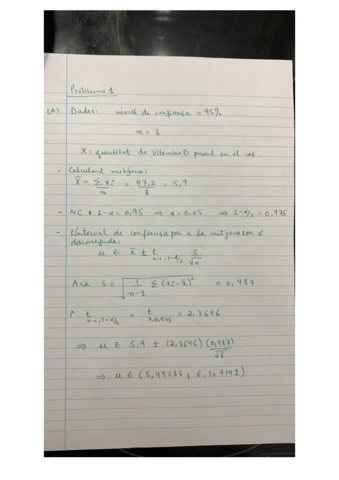 Problema 1
(A) Dades: nivell de confiança = 95%
n = 8
X = quantitat de vitamina D present en el cos
- Calculant mitjana:
x̄ = Σxᵢ/n = 47,2/8 = 5,9
- NC = 1-α = 0,95 ⇒ α = 0,05 ⇒ 1-α/2 = 0,975
- L'interval de confiança per a la mitjana amb σ
desconeguda:
μ ∈ x̄ ± t_{n-1, 1-α/2} S/√n
Ara S = √(1/(n-1) Σ(xᵢ-x̄)²) = 0,487
i t_{n-1, 1-α/2} = t_{7, 0,975} = 2,3646
⇒ μ ∈ 5,9 ± (2,3646) (0,487)/√8
⇒ μ ∈ (5,49286, 6,307141)